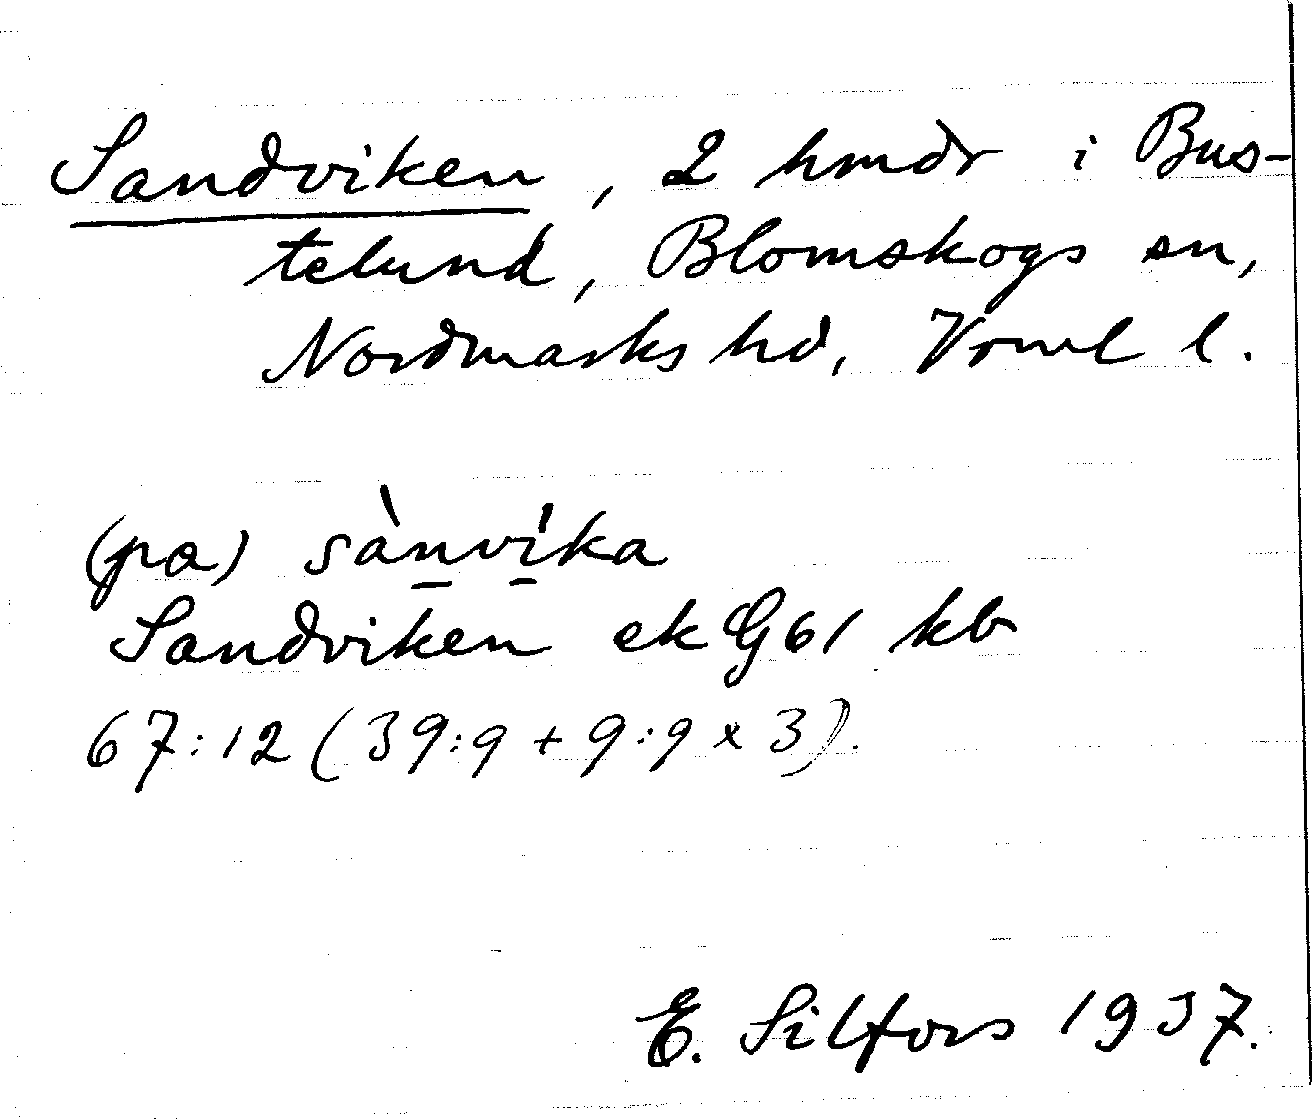 Sandviken, 2 hmdr i Bus-
telund, Blomskogs sn,
Nordmarks hd, Vrml l.
(pa) sànvíka
Sandviken ek G61 kb
67:12 (39:9 + 9:9 x 3).
E. Silfors 1937.